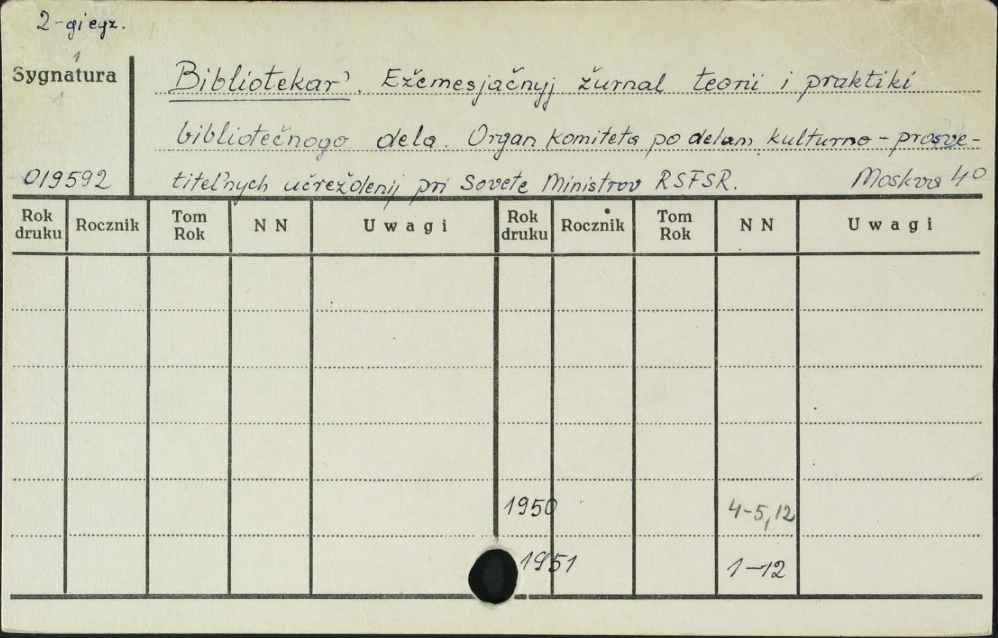 2-gi egz.
1
Sygnatura
1
Bibliotekar'. Ežemesjačnyj žurnal teorii i praktiki
bibliotečnogo dela. Organ komiteta po delam kulturno-prosve-
019592 titel'nych učreždenij pri Sovete Ministrov RSFSR. Moskva 40
Rok druku Rocznik Tom Rok NN Uwagi Rok druku Rocznik Tom Rok NN Uwagi
1950 4-5,12
1951 1-12